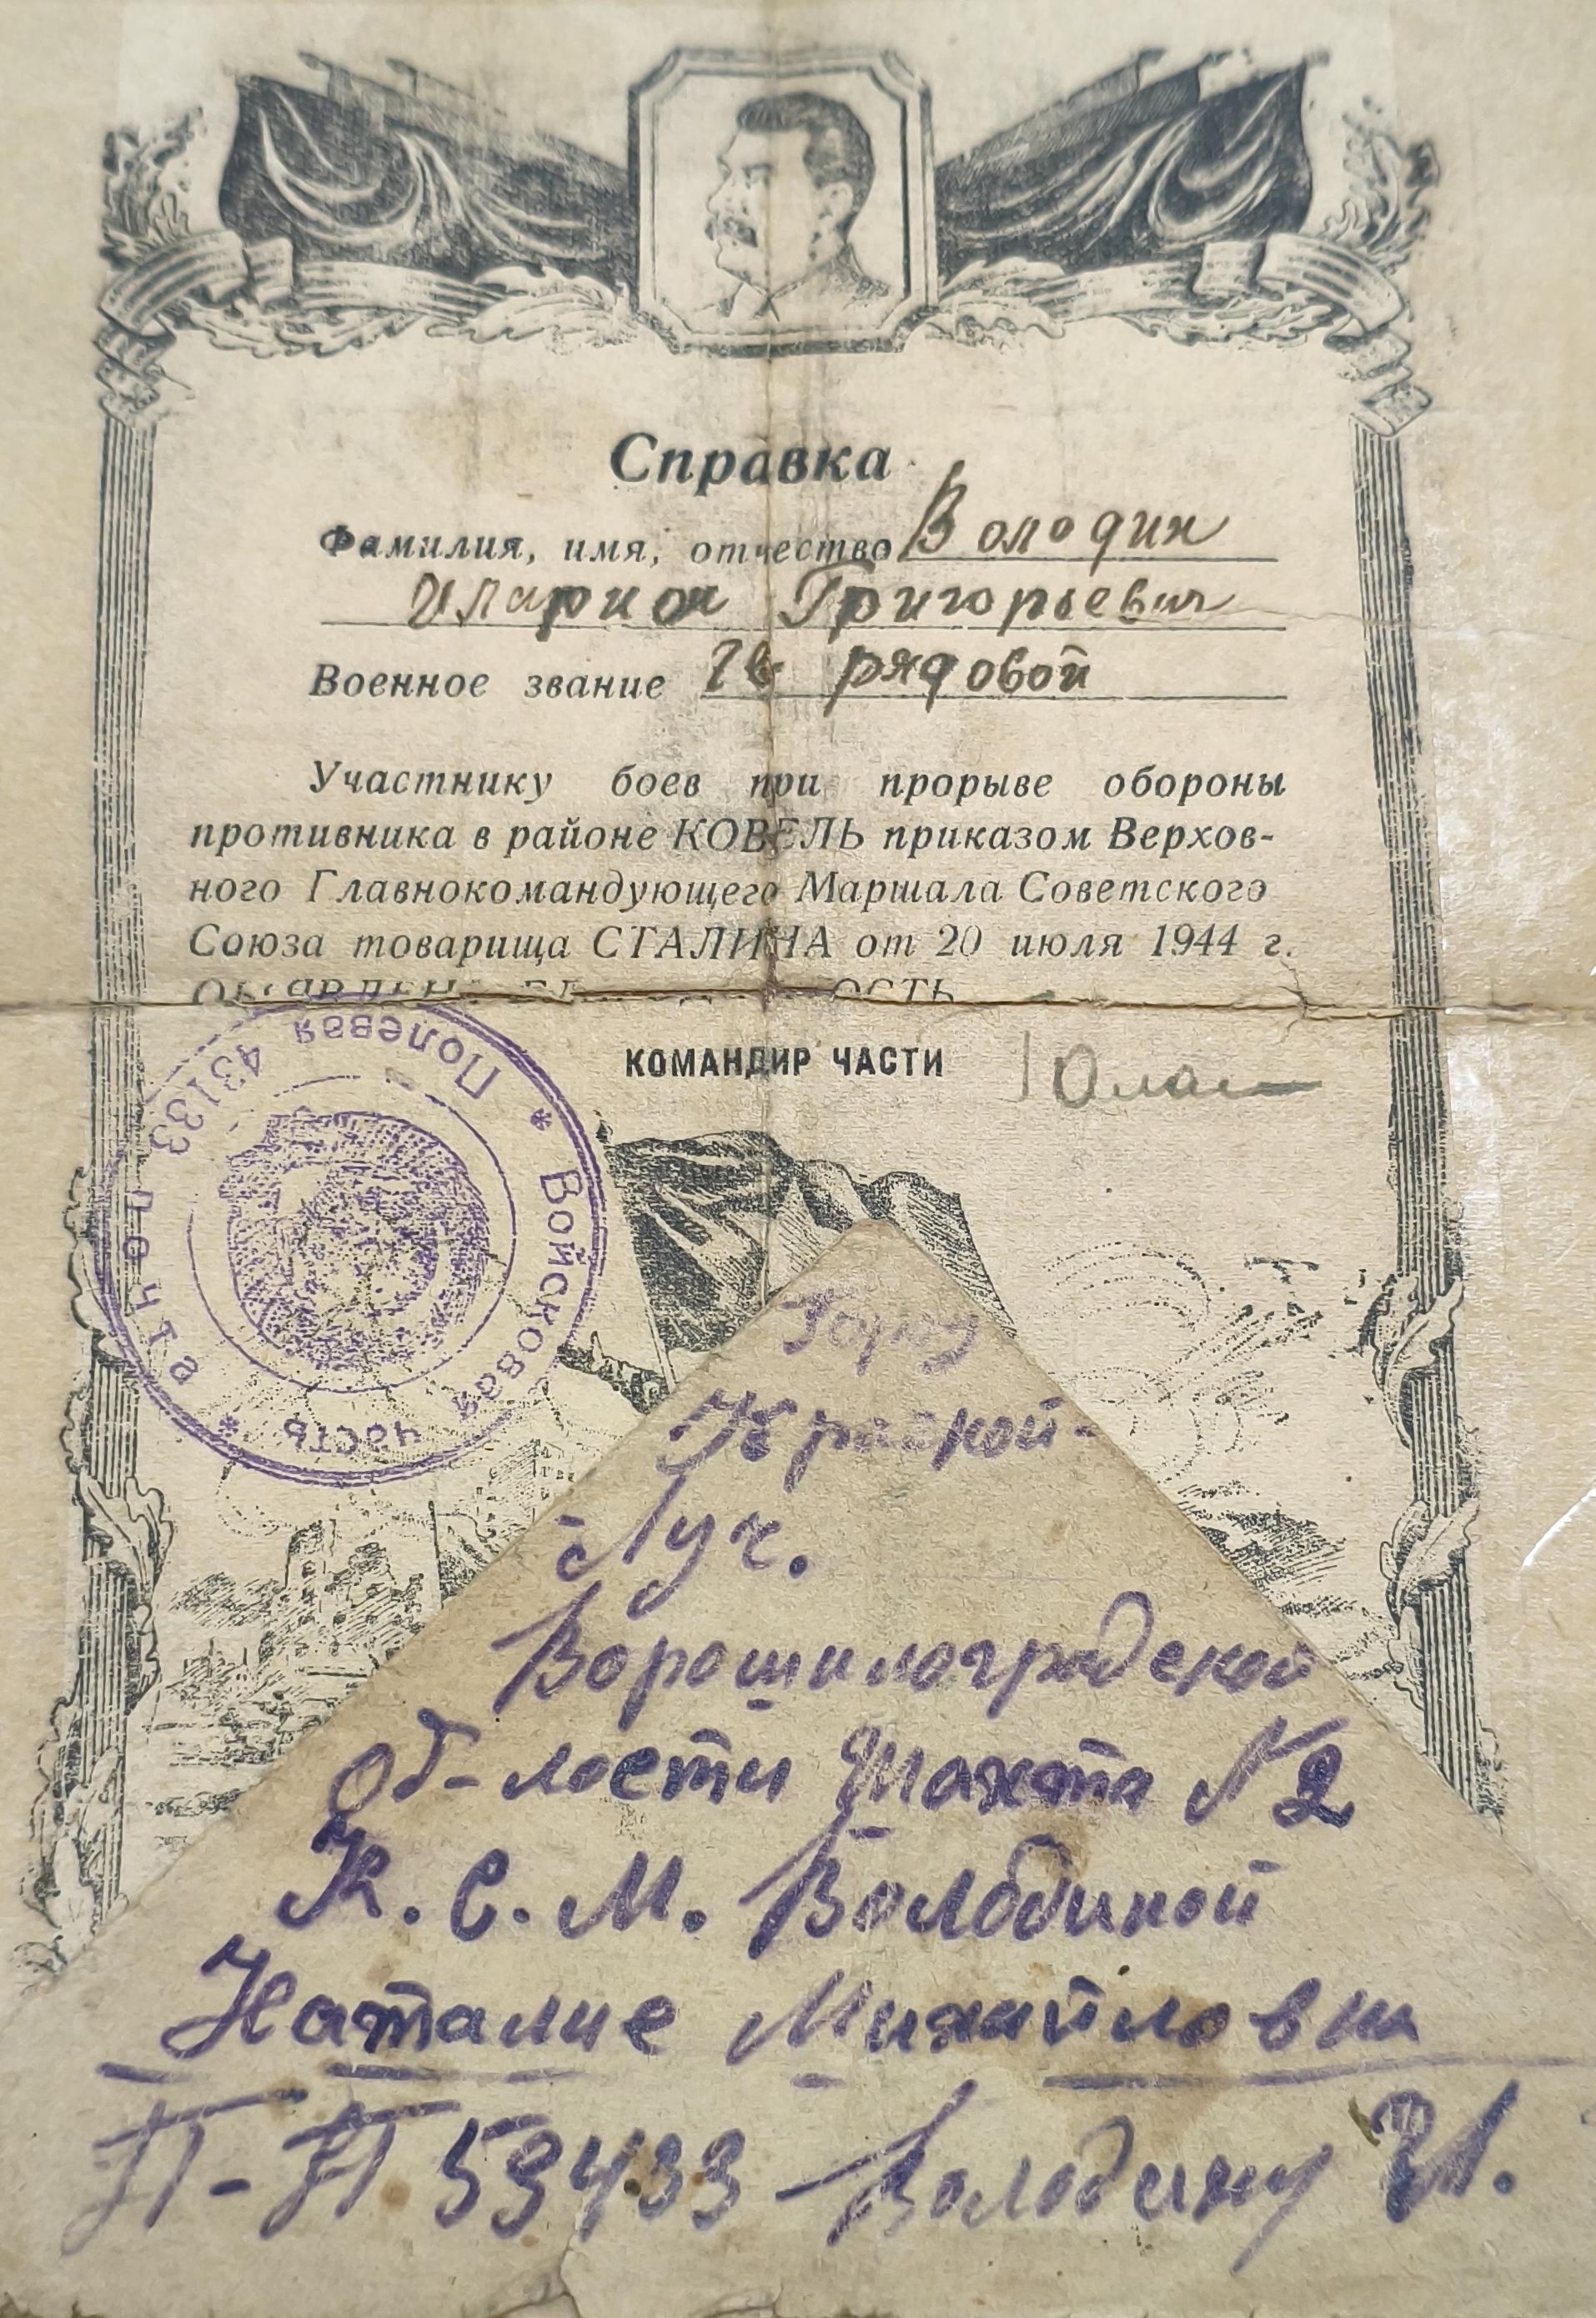 Справка
Фамилия, имя, отчество Володин
Иларион Григорьевич
Военное звание гв рядовой
Участнику боев при прорыве обороны
противника в районе КОВЕЛЬ приказом Верхов-
ного Главнокомандующего Маршала Советского
Союза товарища СТАЛИНА от 20 июля 1944 г.
КОМАНДИР ЧАСТИ
* Войсковая часть * Полевая почта 43133
Луч.
Ворошилоградской
об-ласти Шахта N2
К. С. М. Володиной
Наталие Михайловни
П-П 53433 - Володину И.